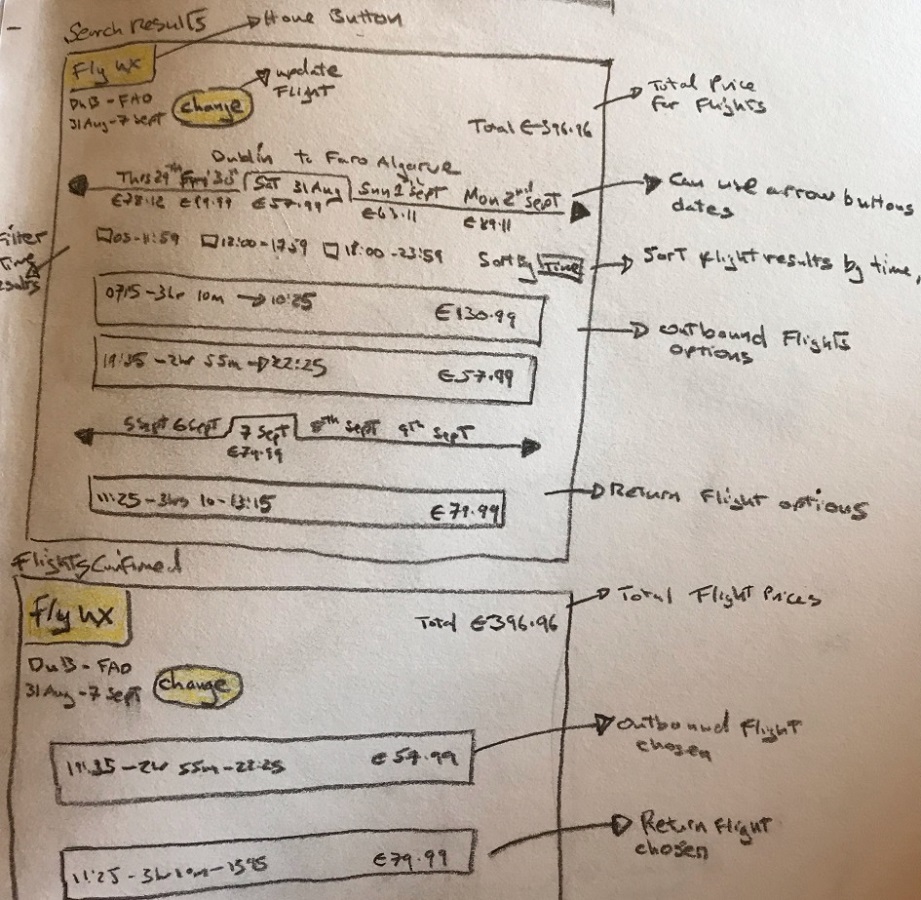 Search Results
Home Button
Fly UX
update
Flight
DUB - FAO
31 Aug - 7 Sept
change
Total €396.96
Total Price
for Flights
Dublin to Faro Algarve
Thurs 29th Fri 30th Sat 31 Aug Sun 1st Sept Mon 2nd Sept
€19.99 €57.99 €63.11 €89.11
Can use arrow buttons
dates
Filter
Time
results
05-11:59 12:00-17:59 18:00-23:59 Sort By Time
Sort flight results by time,
0715 - 3hr 10m → 10:25 €130.99
outbound Flights
options
19:35 - 2hr 55m → 22:25 €57.99
5 Sept 6 Sept 7 Sept 8th Sept 9th Sept
€79.99
11:25 - 3hrs 10 - 13:15 €79.99
Return Flight options
Flights Confirmed
Fly UX
Total €396.96
Total Flight Prices
DUB - FAO
31 Aug - 7 Sept
change
19:35 - 2hr 55m - 22:25 €57.99
outbound Flight
chosen
11:25 - 3hr 10m - €79.99
Return Flight
chosen